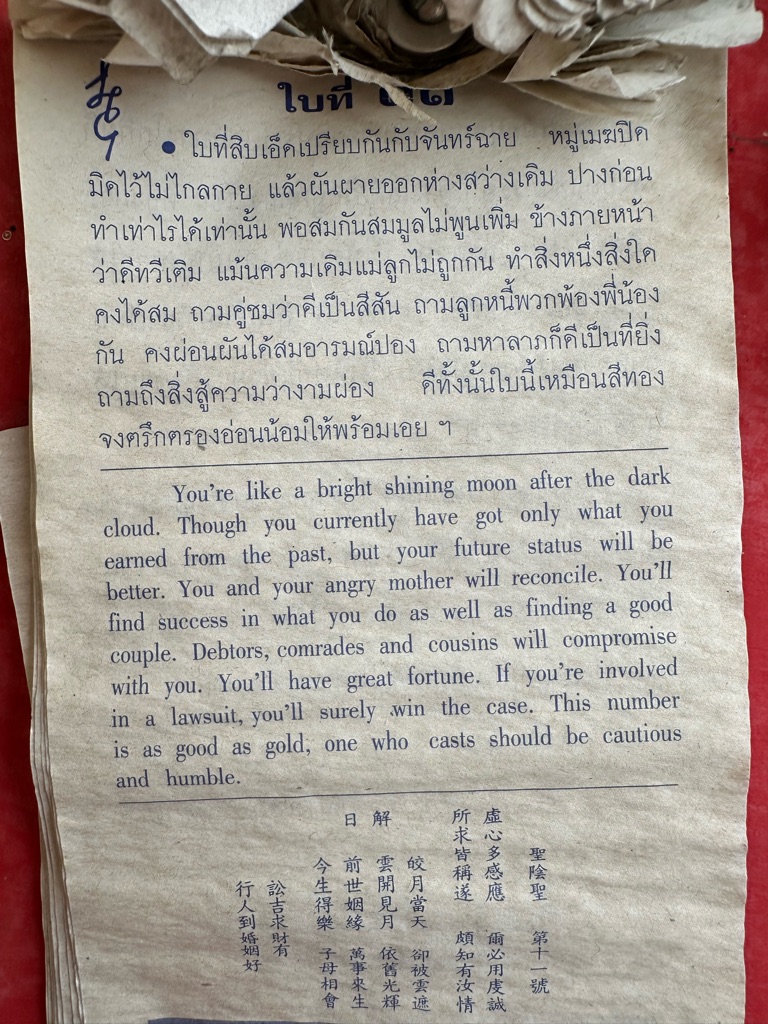 ใบที่ ๑๑
• ใบที่สิบเอ็ดเปรียบกันกับจันทร์ฉาย หมู่เมฆปิด
มิดไว้ไม่ไกลกาย แล้วผันผายออกห่างสว่างเดิม ปางก่อน
ทำเท่าไรได้เท่านั้น พอสมกันสมมูลไม่พูนเพิ่ม ข้างภายหน้า
ว่าดีทวีเติม แม้นความเดิมแม่ลูกไม่ถูกกัน ทำสิ่งหนึ่งสิ่งใด
คงได้สม ถามคู่ชมว่าดีเป็นสีสัน ถามลูกหนี้พวกพ้องพี่น้อง
กัน คงผ่อนผันได้สมอารมณ์ปอง ถามหาลาภก็ดีเป็นที่ยิ่ง
ถามถึงสิ่งสู้ความว่างามผ่อง ดีทั้งนั้นใบนี้เหมือนสีทอง
จงตรึกตรองอ่อนน้อมให้พร้อมเอย ฯ
You're like a bright shining moon after the dark
cloud. Though you currently have got only what you
earned from the past, but your future status will be
better. You and your angry mother will reconcile. You'll
find success in what you do as well as finding a good
couple. Debtors, comrades and cousins will compromise
with you. You'll have great fortune. If you're involved
in a lawsuit, you'll surely win the case. This number
is as good as gold, one who casts should be cautious
and humble.
聖陰聖 第十一號
虛心多感應 爾必用虔誠
所求皆稱遂 頗知有汝情
解日
皎月當天 卻被雲遮
雲開見月 依舊光輝
前世姻緣 萬事來生
今生得樂 子母相會
訟吉求財有
行人到婚姻好